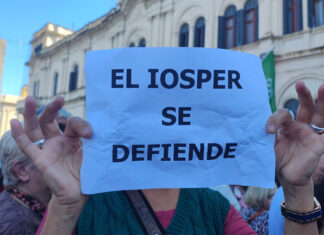 EL IOSPER
SE
DEFIENDE